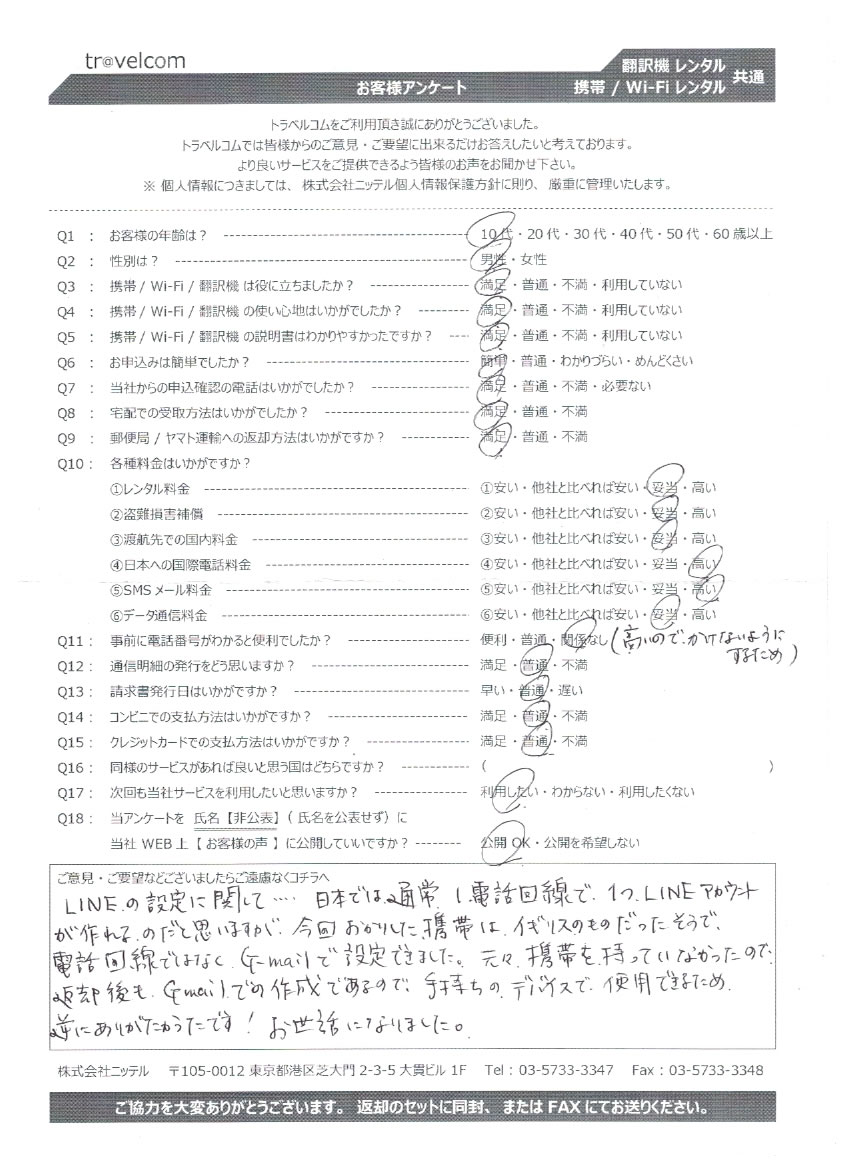 tr@velcom
翻訳機 レンタル
携帯 / Wi-Fi レンタル
共通
お客様アンケート
トラベルコムをご利用頂き誠にありがとうございました。
トラベルコムでは皆様からのご意見・ご要望に出来るだけお答えしたいと考えております。
より良いサービスをご提供できるよう皆様のお声をお聞かせ下さい。
※ 個人情報につきましては、株式会社ニッテル個人情報保護方針に則り、厳重に管理いたします。
Q1 : お客様の年齢は？ 10代・20代・30代・40代・50代・60歳以上
Q2 : 性別は？ 男性・女性
Q3 : 携帯 / Wi-Fi / 翻訳機 は役に立ちましたか？ 満足・普通・不満・利用していない
Q4 : 携帯 / Wi-Fi / 翻訳機 の使い心地はいかがでしたか？ 満足・普通・不満・利用していない
Q5 : 携帯 / Wi-Fi / 翻訳機 の説明書はわかりやすかったですか？ 満足・普通・不満・利用していない
Q6 : お申込みは簡単でしたか？ 簡単・普通・わかりづらい・めんどくさい
Q7 : 当社からの申込確認の電話はいかがでしたか？ 満足・普通・不満・必要ない
Q8 : 宅配での受取方法はいかがでしたか？ 満足・普通・不満
Q9 : 郵便局 / ヤマト運輸への返却方法はいかがですか？ 満足・普通・不満
Q10 : 各種料金はいかがですか？
①レンタル料金 ①安い・他社と比べれば安い・妥当・高い
②盗難損害補償 ②安い・他社と比べれば安い・妥当・高い
③渡航先での国内料金 ③安い・他社と比べれば安い・妥当・高い
④日本への国際電話料金 ④安い・他社と比べれば安い・妥当・高い
⑤SMSメール料金 ⑤安い・他社と比べれば安い・妥当・高い
⑥データ通信料金 ⑥安い・他社と比べれば安い・妥当・高い
Q11 : 事前に電話番号がわかると便利でしたか？ 便利・普通・関係なし (高いので、かけないように
するため)
Q12 : 通信明細の発行をどう思いますか？ 満足・普通・不満
Q13 : 請求書発行日はいかがですか？ 早い・普通・遅い
Q14 : コンビニでの支払方法はいかがですか？ 満足・普通・不満
Q15 : クレジットカードでの支払方法はいかがですか？ 満足・普通・不満
Q16 : 同様のサービスがあれば良いと思う国はどちらですか？ ( )
Q17 : 次回も当社サービスを利用したいと思いますか？ 利用したい・わからない・利用したくない
Q18 : 当アンケートを 氏名【非公表】( 氏名を公表せず ) に
当社 WEB 上【 お客様の声 】に公開していいですか？ 公開 OK・公開を希望しない
ご意見・ご要望などございましたらご遠慮なくコチラへ
LINEの設定に関して…. 日本では通常、1電話回線で、1つ、LINEアカウント
が作れるのだと思いますが、今回おかりした携帯は、イギリスのものだったそうで、
電話回線ではなく、G-mailで設定できました。元々、携帯を持っていなかったので、
返却後も、Gmailでの作成であるので、手持ちの、デバイスで、使用できるため、
逆にありがたかったです！ お世話になりました。
株式会社ニッテル 〒105-0012 東京都港区芝大門 2-3-5 大貫ビル 1F Tel : 03-5733-3347 Fax : 03-5733-3348
ご協力を大変ありがとうございます。 返却のセットに同封、または FAX にてお送りください。